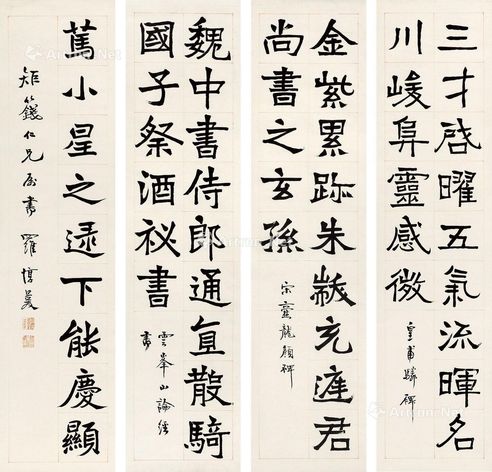 三才啓曜五氣流暉名
川峻阜靈感微
皇甫驎碑
金紫累跡朱黻充庭君
尚書之玄孫
宋爨龍顏碑
魏中書侍郎通直散騎
國子祭酒祕書
雲峯山論經
書
篤小星之逮下能慶顯
矩籛仁兄屬書 羅惇㬊
Artron.Net